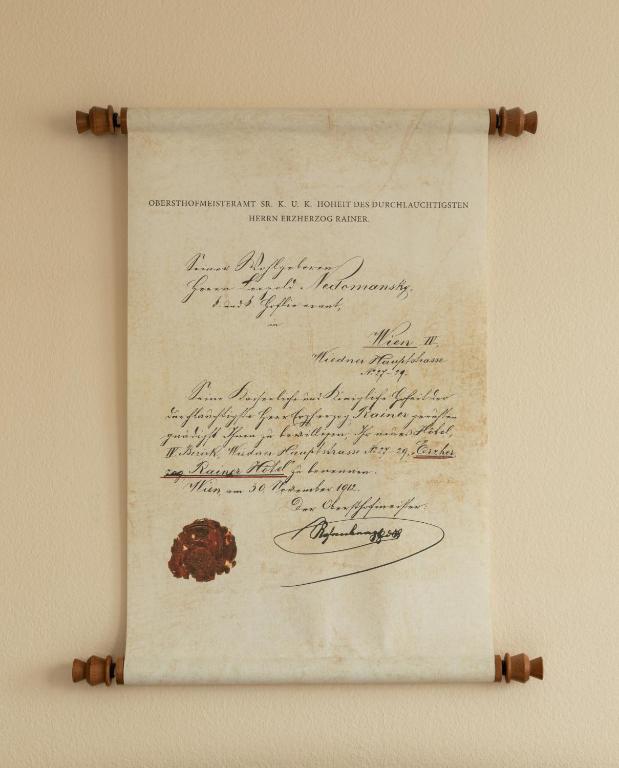 OBERSTHOFMEISTERAMT SR. K. U. K. HOHEIT DES DURCHLAUCHTIGSTEN
HERRN ERZHERZOG RAINER.
Seiner Wohlgeboren
Herrn Leopold Nedomansky,
k. und k. Hoflieferant,
in
Wien IV.
Wiedner Hauptstrasse
No 27-29.
Seine Kaiserliche und Königliche Hoheit der
durchlauchtigste Herr Erzherzog Rainer geruhten
gnädigst Ihnen zu bewilligen, Ihr neues Hôtel,
IV. Bezirk, Wiedner Hauptstrasse No 27-29, „Erzher
zog Rainer Hôtel" zu benennen.
Wien am 30. November 1912.
Der Obersthofmeister: